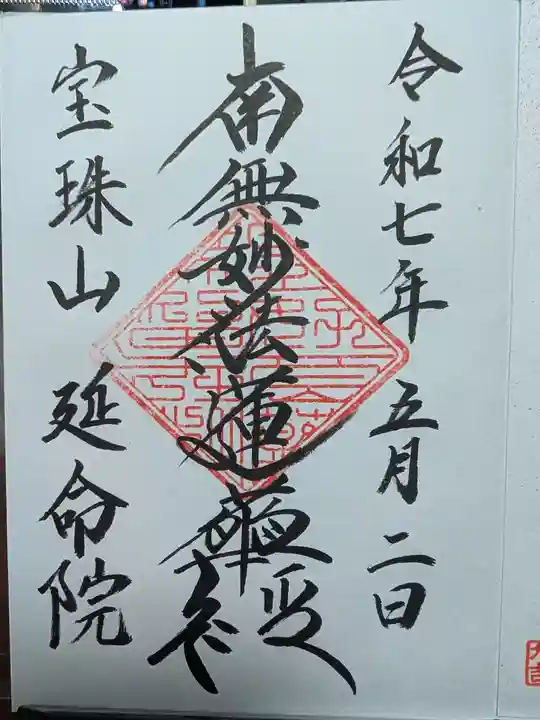 令和七年五月二日
南無妙法蓮華経
宝珠山 延命院